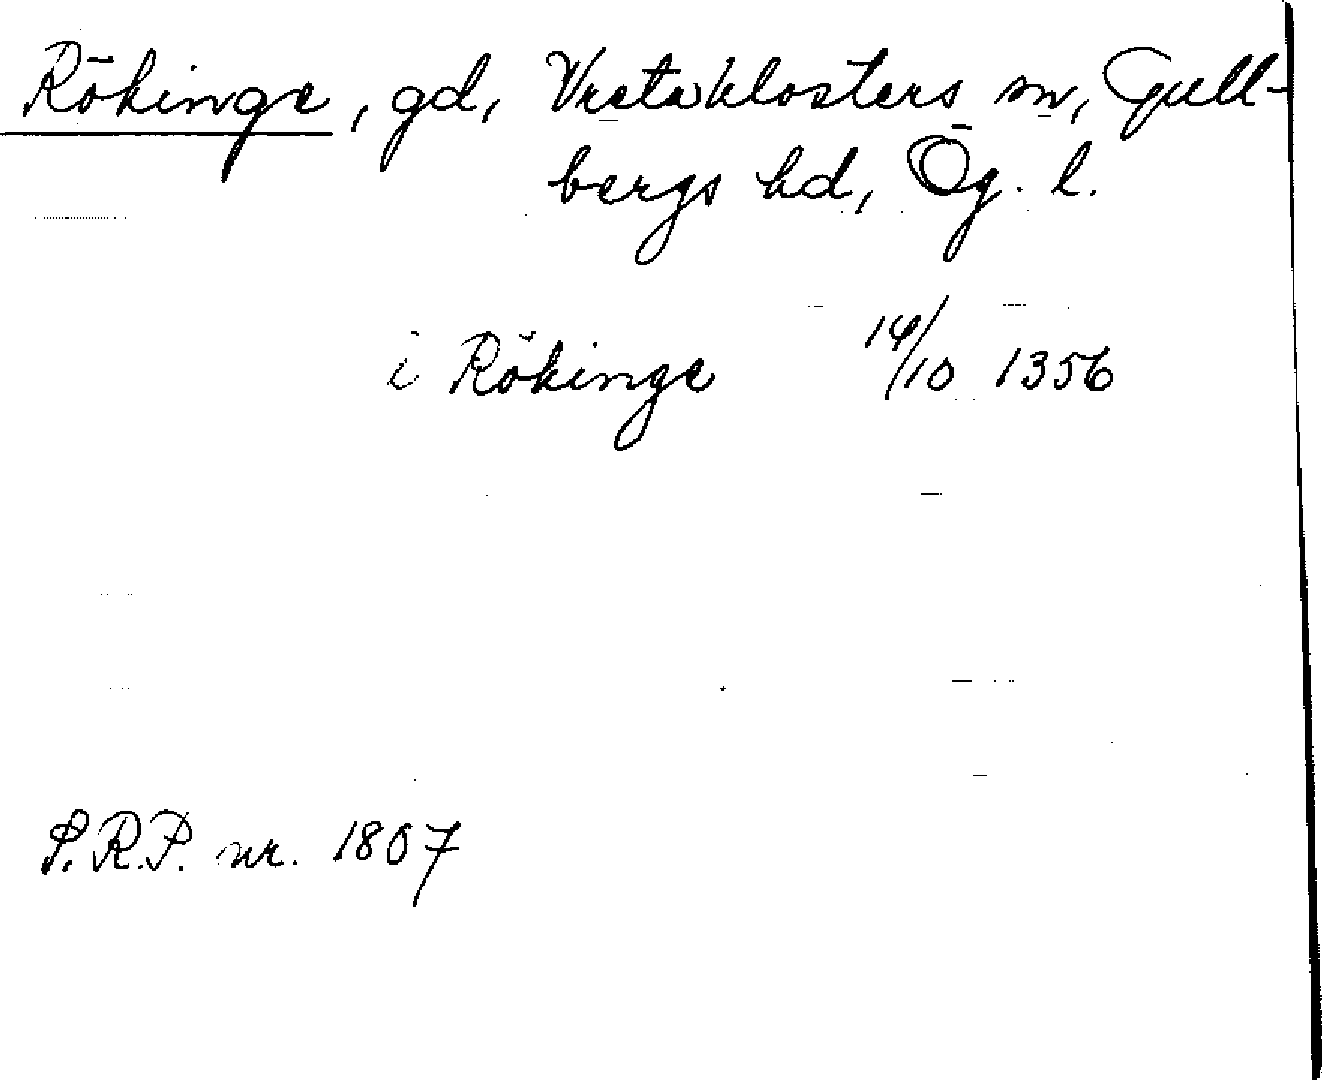 Rökinge, gd, Vreta klosters sn, Gull-
bergs hd, Ög. l.
i Rökinge 14/10 1356
S.R.P. nr. 1807